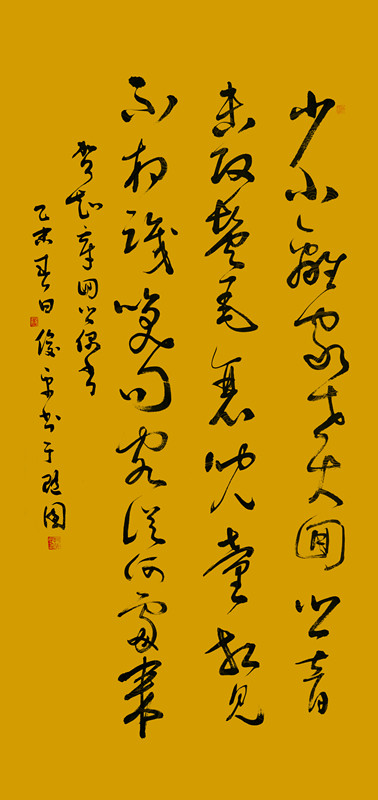 少小離家老大回鄉音
未改鬢毛衰兒童相見
不相識笑問客從何處來
賀知章回鄉偶書
乙未春日俊平書于園